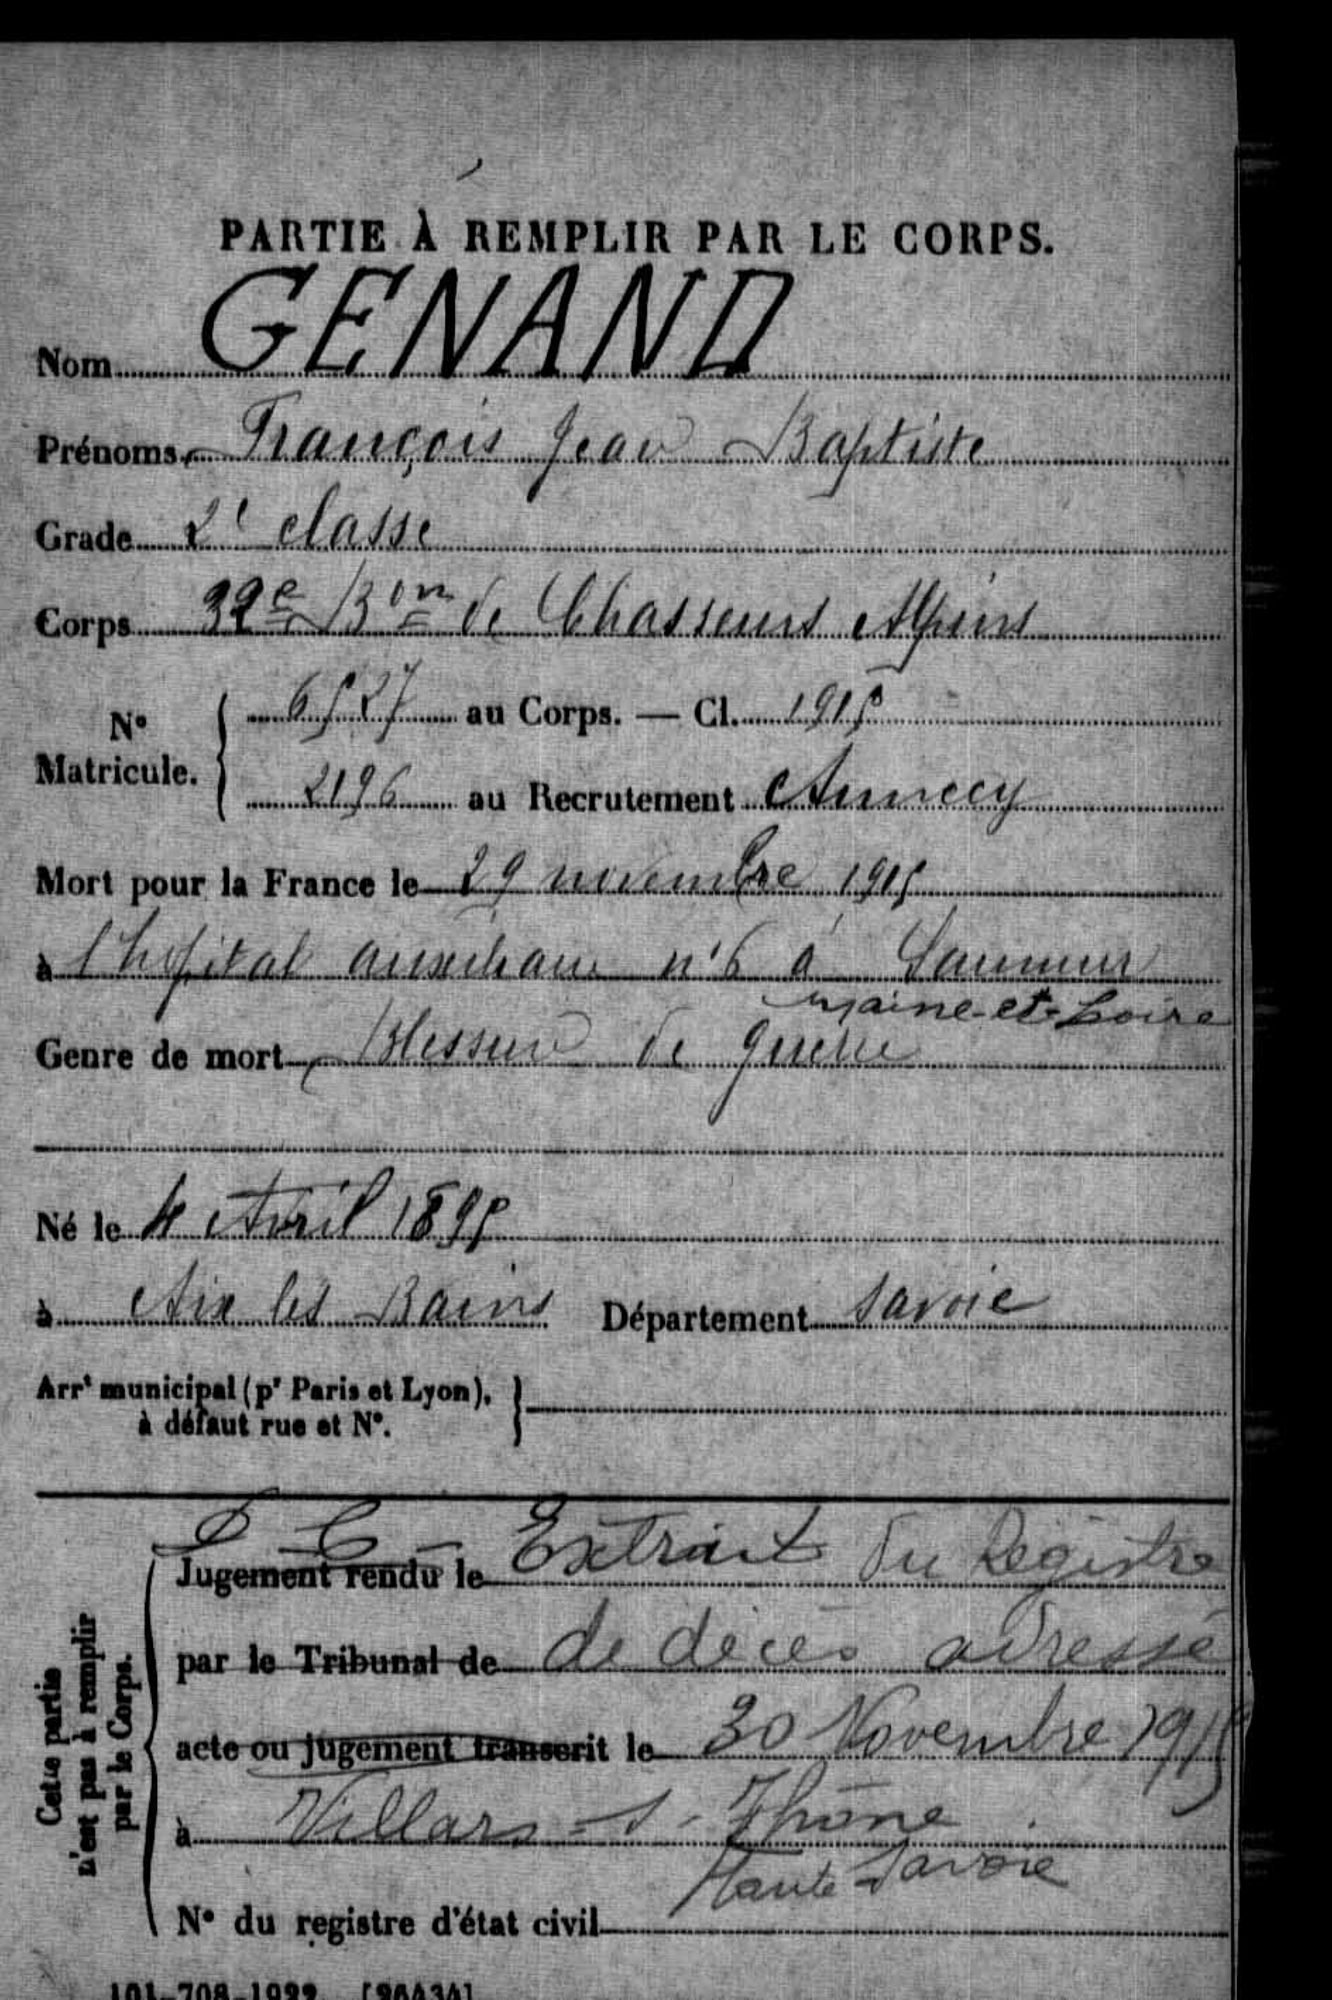 PARTIE À REMPLIR PAR LE CORPS.
Nom GENAND
Prénoms François Jean Baptiste
Grade 2e classe
Corps 32e Bon de Chasseurs Alpins
N° Matricule. { 6527 au Corps. — Cl. 1915
2196 au Recrutement Annecy
Mort pour la France le 29 novembre 1915
à l'hôpital auxiliaire n°6 à Saumur
Maine-et-Loire
Genre de mort Blessure de guerre
Né le 4 Avril 1895
à Aix les Bains Département Savoie
Arrt municipal (pr Paris et Lyon),
à défaut rue et N°.
Cette partie
n'est pas à remplir
par le Corps.
Jugement rendu le Extrait du Registre
par le Tribunal de de décès adressé
acte ou jugement transcrit le 30 Novembre 1915
à Villars-s-Thône
Haute Savoie
N° du registre d'état civil
101-708-1922. [26434]